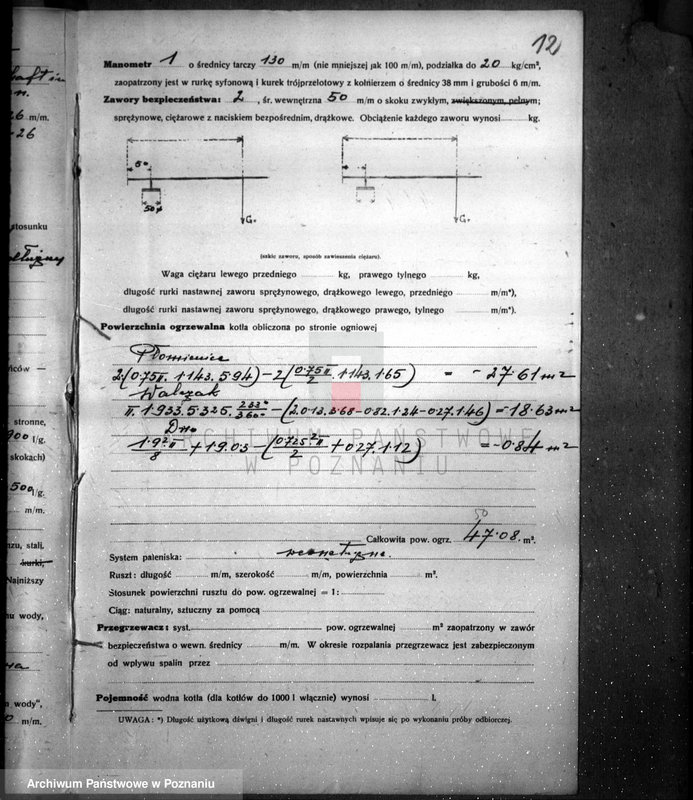 12
Manometr 1 o średnicy tarczy 130 m/m (nie mniejszej jak 100 m/m), podziałka do 20 kg/cm²,
zaopatrzony jest w rurkę syfonową i kurek trójprzelotowy z kołnierzem o średnicy 38 mm i grubości 6 m/m.
Zawory bezpieczeństwa: 2, śr. wewnętrzna 50 m/m o skoku zwykłym, zwiększonym, pełnym;
sprężynowe, ciężarowe z naciskiem bezpośrednim, drążkowe. Obciążenie każdego zaworu wynosi kg.
50
50
G. G.
(szkic zaworu, sposób zawieszenia ciężaru).
Waga ciężaru lewego przedniego kg, prawego tylnego kg,
długość rurki nastawnej zaworu sprężynowego, drążkowego lewego, przedniego m/m*),
długość rurki nastawnej zaworu sprężynowego, drążkowego prawego, tylnego m/m*).
Powierzchnia ogrzewalna kotła obliczona po stronie ogniowej
Płomienice
2.(0.75 π. 1143.594) - 2(0.75 π/2 . 1143.165) = - 27.61 m²
Walczak
π. 1.933.5.325. /360° - (2.013.3.68 - 0.82.1.24 - 0.27.146) = 18.63 m²
Dno
1.9² π/8 + 1.9.03 - (0.725² π/2 + 0.27.1.12) = - 0.84 m²
ARCHIWUM PAŃSTWOWE
W POZNANIU
50
Całkowita pow. ogrz. 47.08. m².
System paleniska: wewnętrzne.
Ruszt: długość m/m, szerokość m/m, powierzchnia m².
Stosunek powierzchni rusztu do pow. ogrzewalnej = 1:
Ciąg: naturalny, sztuczny za pomocą
Przegrzewacz: syst. pow. ogrzewalnej m² zaopatrzony w zawór
bezpieczeństwa o wewn. średnicy m/m. W okresie rozpalania przegrzewacz jest zabezpieczonym
od wpływu spalin przez
Pojemność wodna kotła (dla kotłów do 1000 l włącznie) wynosi l.
UWAGA: *) Długość użytkową dźwigni i długość rurek nastawnych wpisuje się po wykonaniu próby odbiorczej.
m/m.
stosunku
stronne,
l/g.
skokach)
500 l/g.
m/m.
stali,
kurki,
Najniższy
wody,
wody",
m/m.
Archiwum Państwowe w Poznaniu